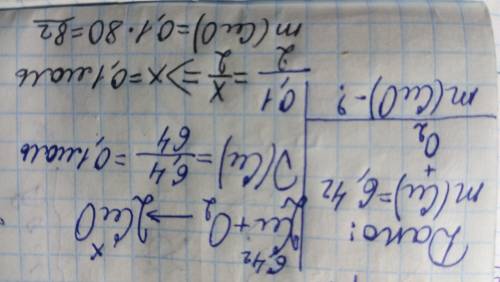 Дано:
m(Cu)=6,4г
+
O₂
m(CuO)-?
6,4г x
2Cu+O₂ → 2CuO
ν(Cu)= 6,4/64 = 0,1моль
0,1/2 = x/2 => x=0,1моль
m(CuO)=0,1·80=8г